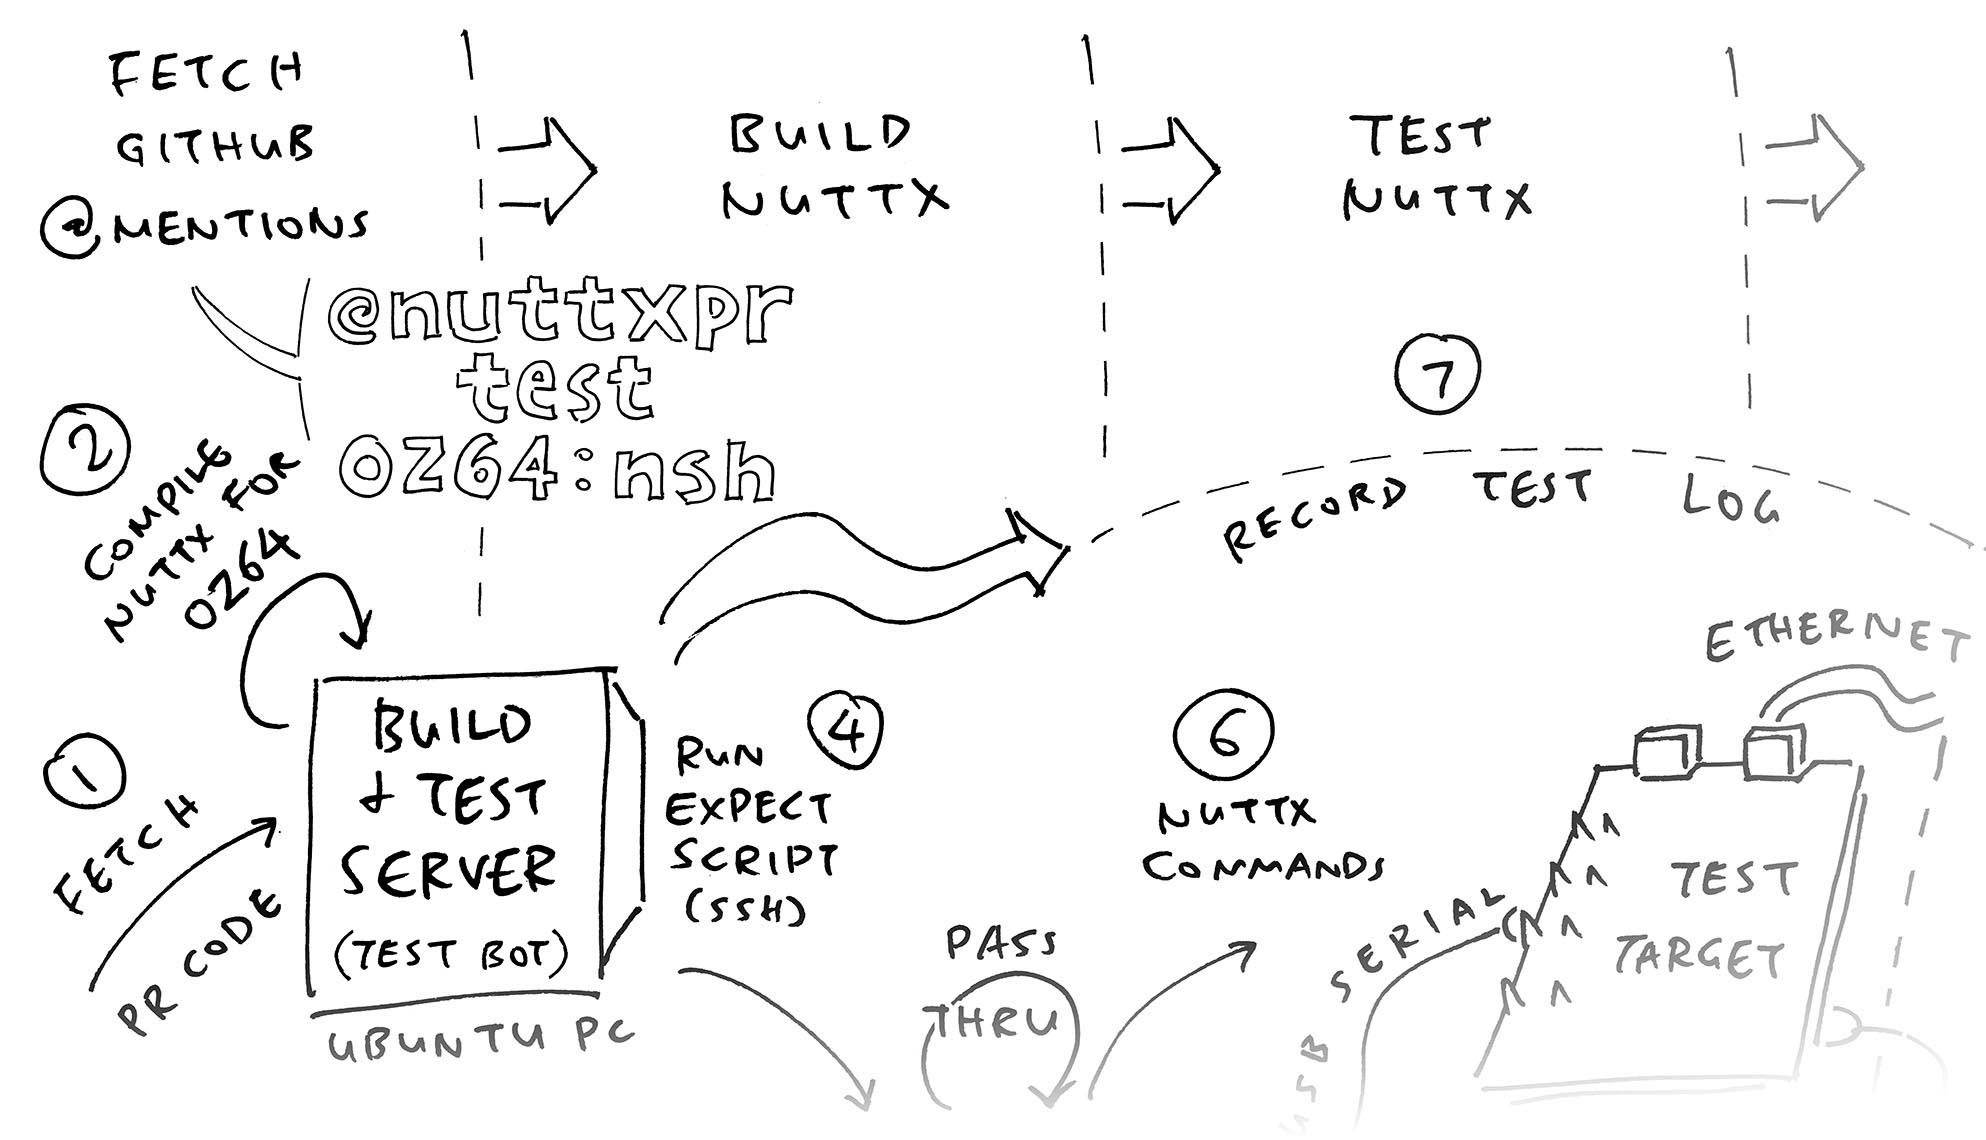 FETCH
GITHUB
@MENTIONS
BUILD
NUTTX
TEST
NUTTX
@nuttxpr
test
oz64:nsh
7
RECORD TEST LOG
2
COMPILE
NUTTX FOR
OZ64
ETHERNET
1
FETCH
PR CODE
BUILD
& TEST
SERVER
(TEST BOT)
UBUNTU PC
4
RUN
EXPECT
SCRIPT
(SSH)
PASS
THRU
6
NUTTX
COMMANDS
USB SERIAL
TEST
TARGET